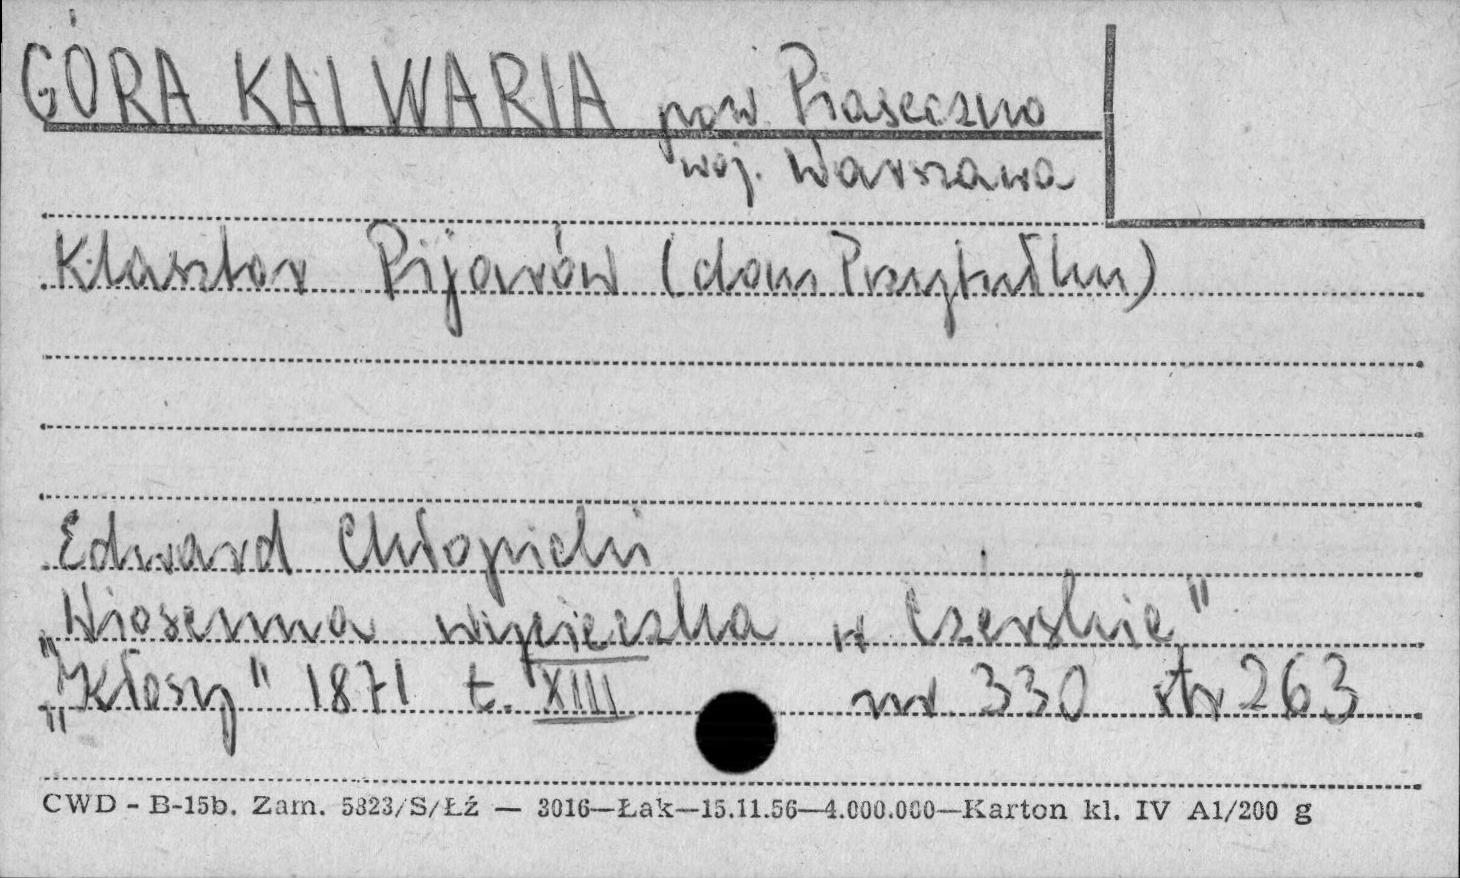 GÓRA KALWARIA pow. Piaseczno
woj. Warszawa
Klasztor Pijarów (dom Przytułku)
Edward Chłopicki
„Wiosenna wycieczka w Czerskie"
„Kłosy" 1871 t. XIII nr 330 str 263
CWD - B-15b. Zam. 5823/S/Łź — 3016—Łak—15.11.56—4.000.000—Karton kl. IV A1/200 g